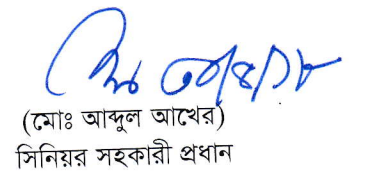 ৩০/৪/১৮
(মোঃ আব্দুল আখের)
সিনিয়র সহকারী প্রধান